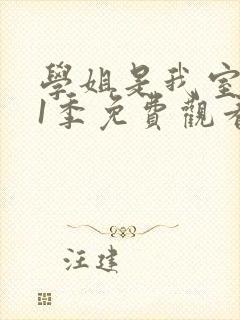 學姐是我室
1季免費觀看
汪建